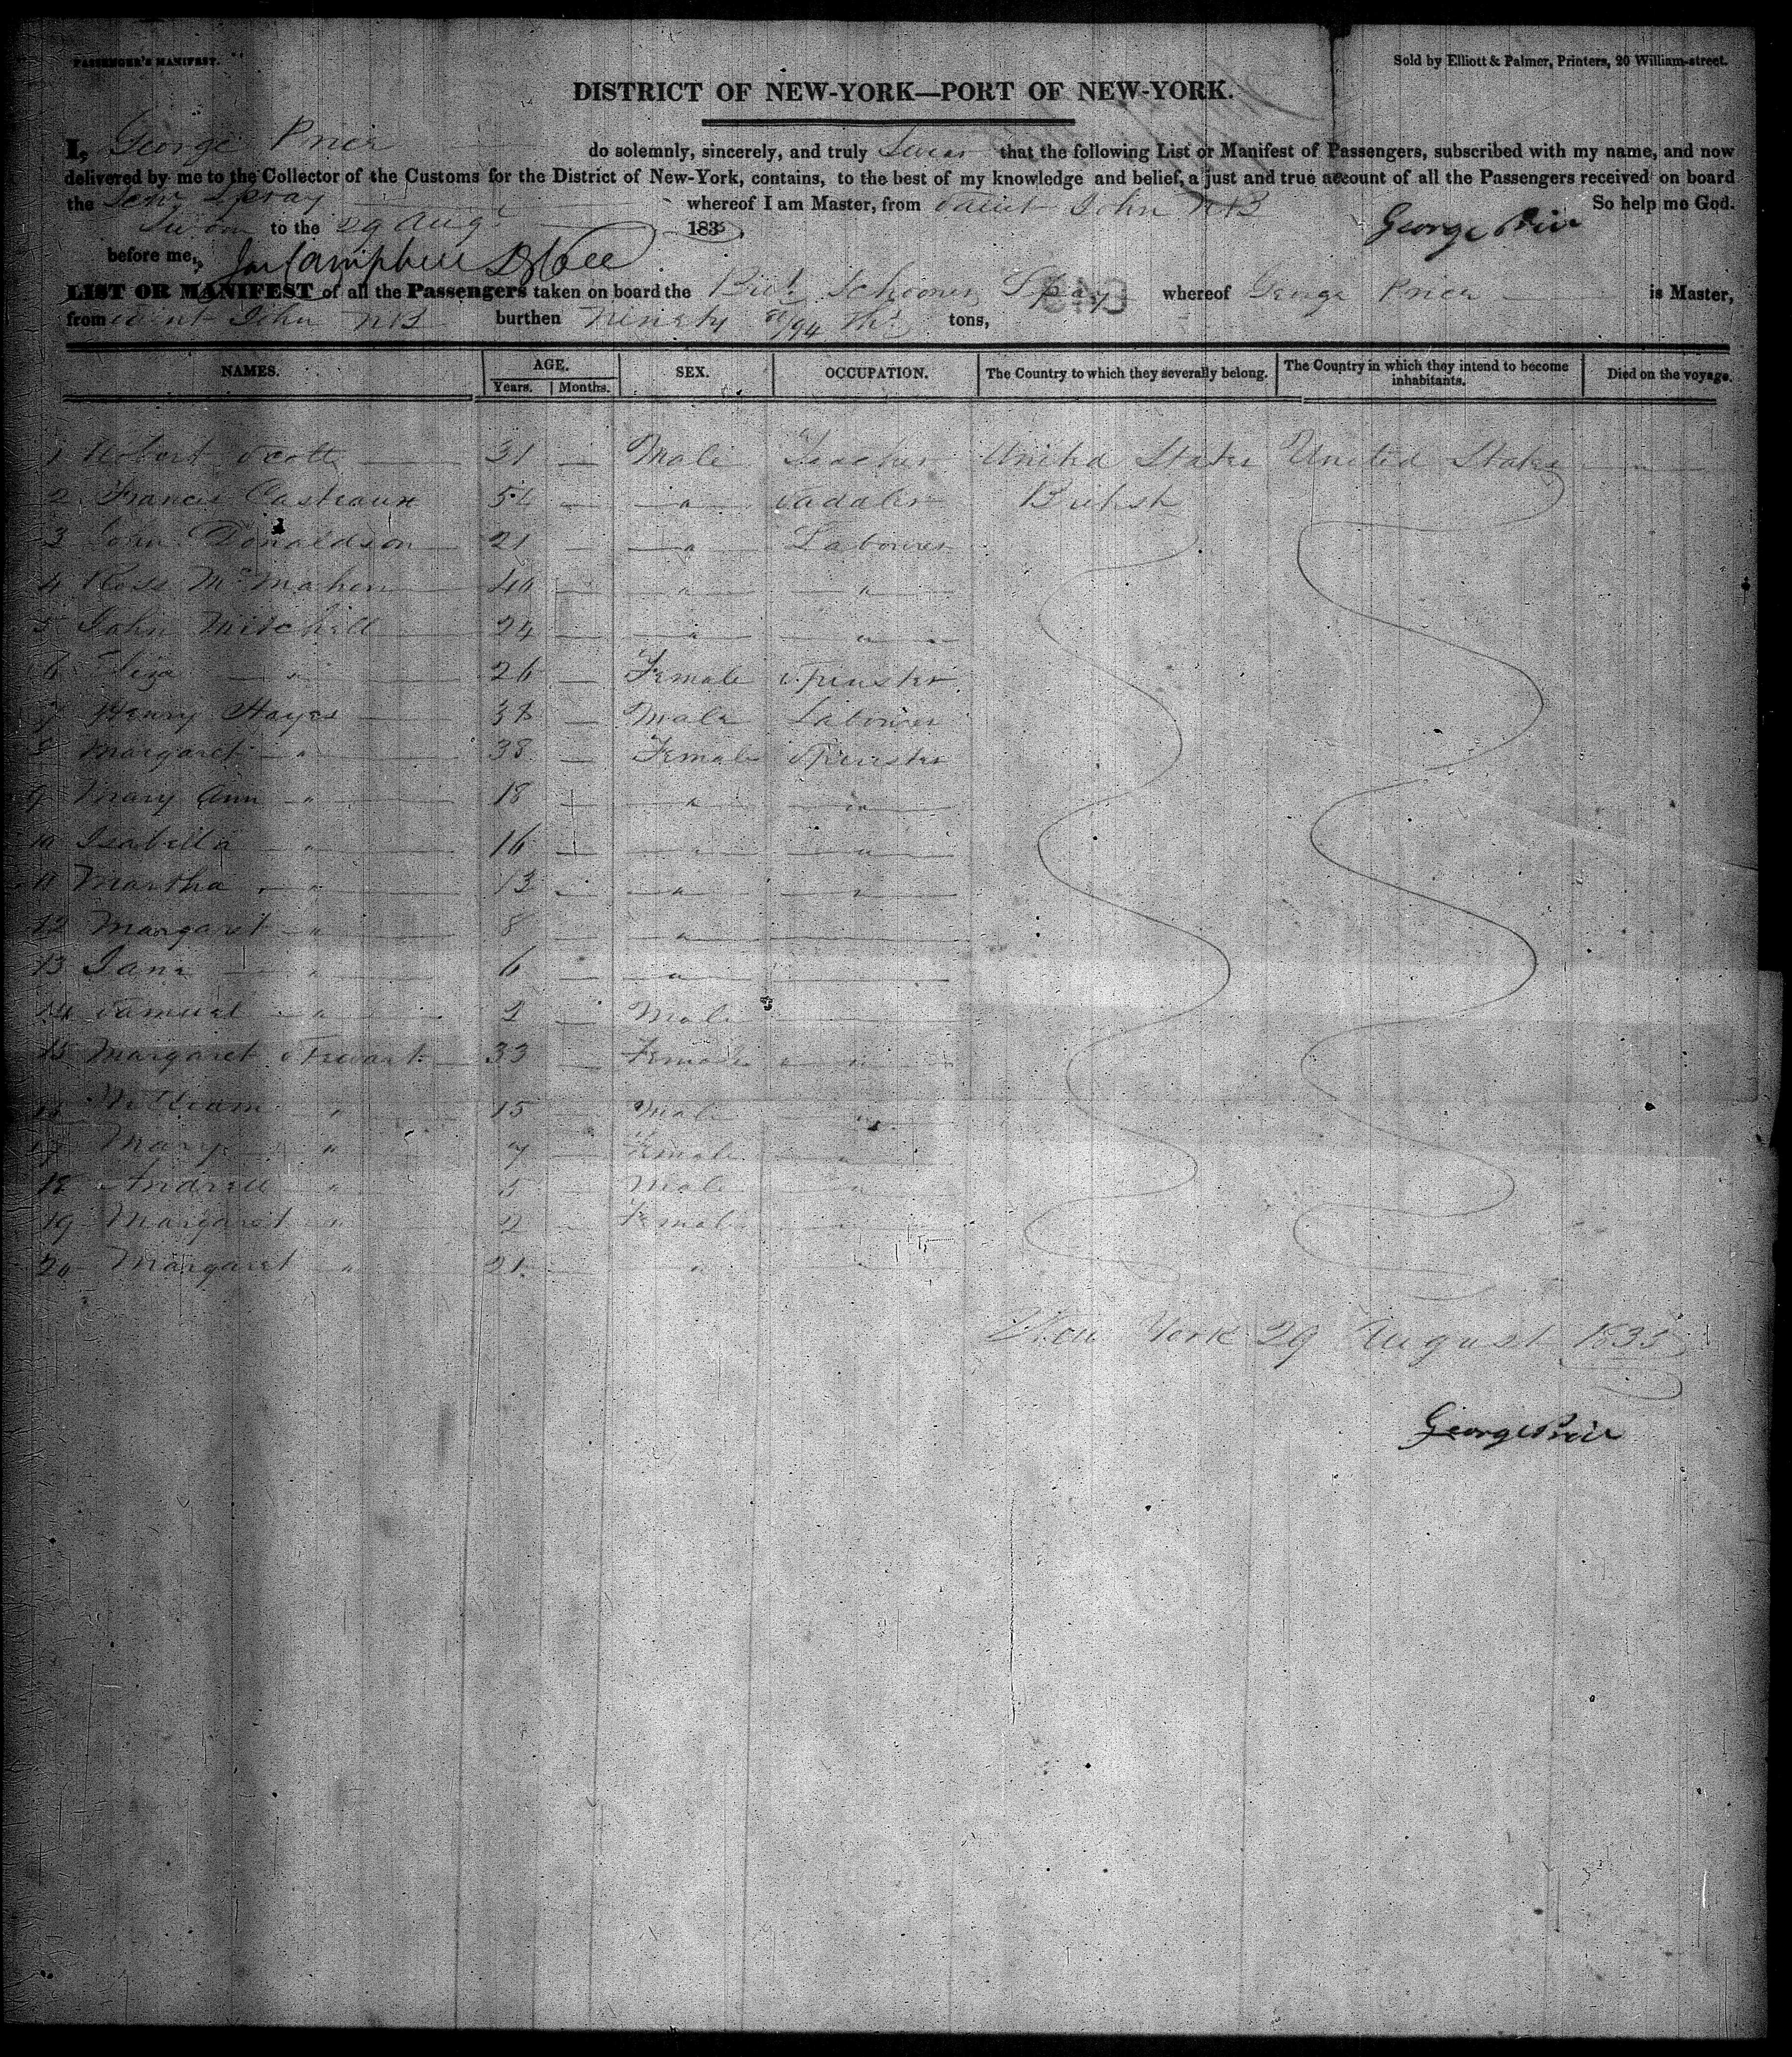 PASSENGER'S MANIFEST.
Sold by Elliott & Palmer, Printers, 20 William-street.
DISTRICT OF NEW-YORK—PORT OF NEW-YORK.
I, George Price do solemnly, sincerely, and truly Swear that the following List or Manifest of Passengers, subscribed with my name, and now
delivered by me to the Collector of the Customs for the District of New-York, contains, to the best of my knowledge and belief, a just and true account of all the Passengers received on board
the Schr Spray whereof I am Master, from Saint John NB So help me God.
Sworn to the 29 Augt 1835 George Price
before me,
LIST OR MANIFEST of all the Passengers taken on board the Brit Schooner Spray whereof George Price is Master,
from Saint John NB burthen Ninety /94 ths tons,
NAMES. AGE. Years. Months. SEX. OCCUPATION. The Country to which they severally belong. The Country in which they intend to become inhabitants. Died on the voyage.
1 Robert Scott — 31 — Male Teacher United States United States —
2 Francis Castraux 52 — " Sadaler British
3 John Donaldson 21 — " Labourer
4 Ross McMahon 40 — " "
5 John Mitchell 24 — " "
6 Eliza " 26 — Female Spinster
7 Henry Hayes 38 — Male Labourer
8 Margaret " 38 — Female Spinster
9 Mary Ann " 18 — " "
10 Isabella " 16 — " "
11 Martha " 13 — " "
12 Margaret " 8 — " —
13 Jane " 6 — " —
14 Samuel " 2 — Male —
15 Margaret Stewart 33 — Female "
16 William " 15 — Male "
17 Mary " 7 — Female "
18 Andrew " 5 — Male "
19 Margaret " 2 — Female "
20 Margaret " 21 — " —
New York 29 August 1835
George Price